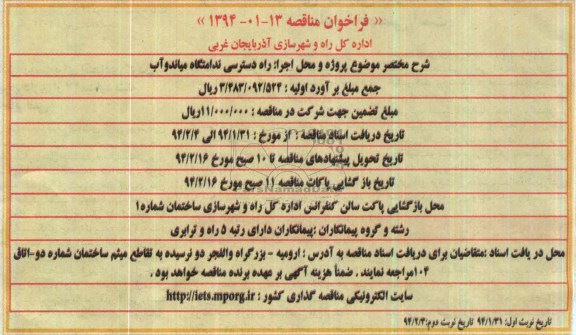 « فراخوان مناقصه ۱۳-۰۱-۱۳۹۴ »
اداره کل راه و شهرسازی آذربایجان غربی
شرح مختصر موضوع پروژه و محل اجرا: راه دسترسی ندامتگاه میاندوآب
جمع مبلغ بر آورد اولیه : ۳/۴۸۳/۰۹۲/۵۲۴ ریال
مبلغ تضمین جهت شرکت در مناقصه : ۱۱/۰۰۰/۰۰۰ریال
تاریخ دریافت اسناد مناقصه : از مورخ : ۹۴/۱/۳۱ الی ۹۴/۲/۴
تاریخ تحویل پیشنهادهای مناقصه تا ۱۰ صبح مورخ ۹۴/۲/۱۶
تاریخ باز گشایی پاکات مناقصه ۱۱ صبح مورخ ۹۴/۲/۱۶
محل بازگشایی پاکت سالن کنفرانس اداره کل راه و شهرسازی ساختمان شماره۱
رشته و گروه پیمانکاران :پیمانکاران دارای رتبه ۵ راه و ترابری
محل در یافت اسناد :متقاضیان برای دریافت اسناد مناقصه به آدرس : ارومیه - بزرگراه والفجر دو نرسیده به تقاطع میثم ساختمان شماره دو-اتاق
۱۰۴مراجعه نمایند . ضمناً هزینه آگهی بر عهده برنده مناقصه خواهد بود .
سایت الکترونیکی مناقصه گذاری کشور : http://iets.mporg.ir
تاریخ نوبت اول: ۹۴/۱/۳۱ تاریخ نوبت دوم:۹۴/۲/۳